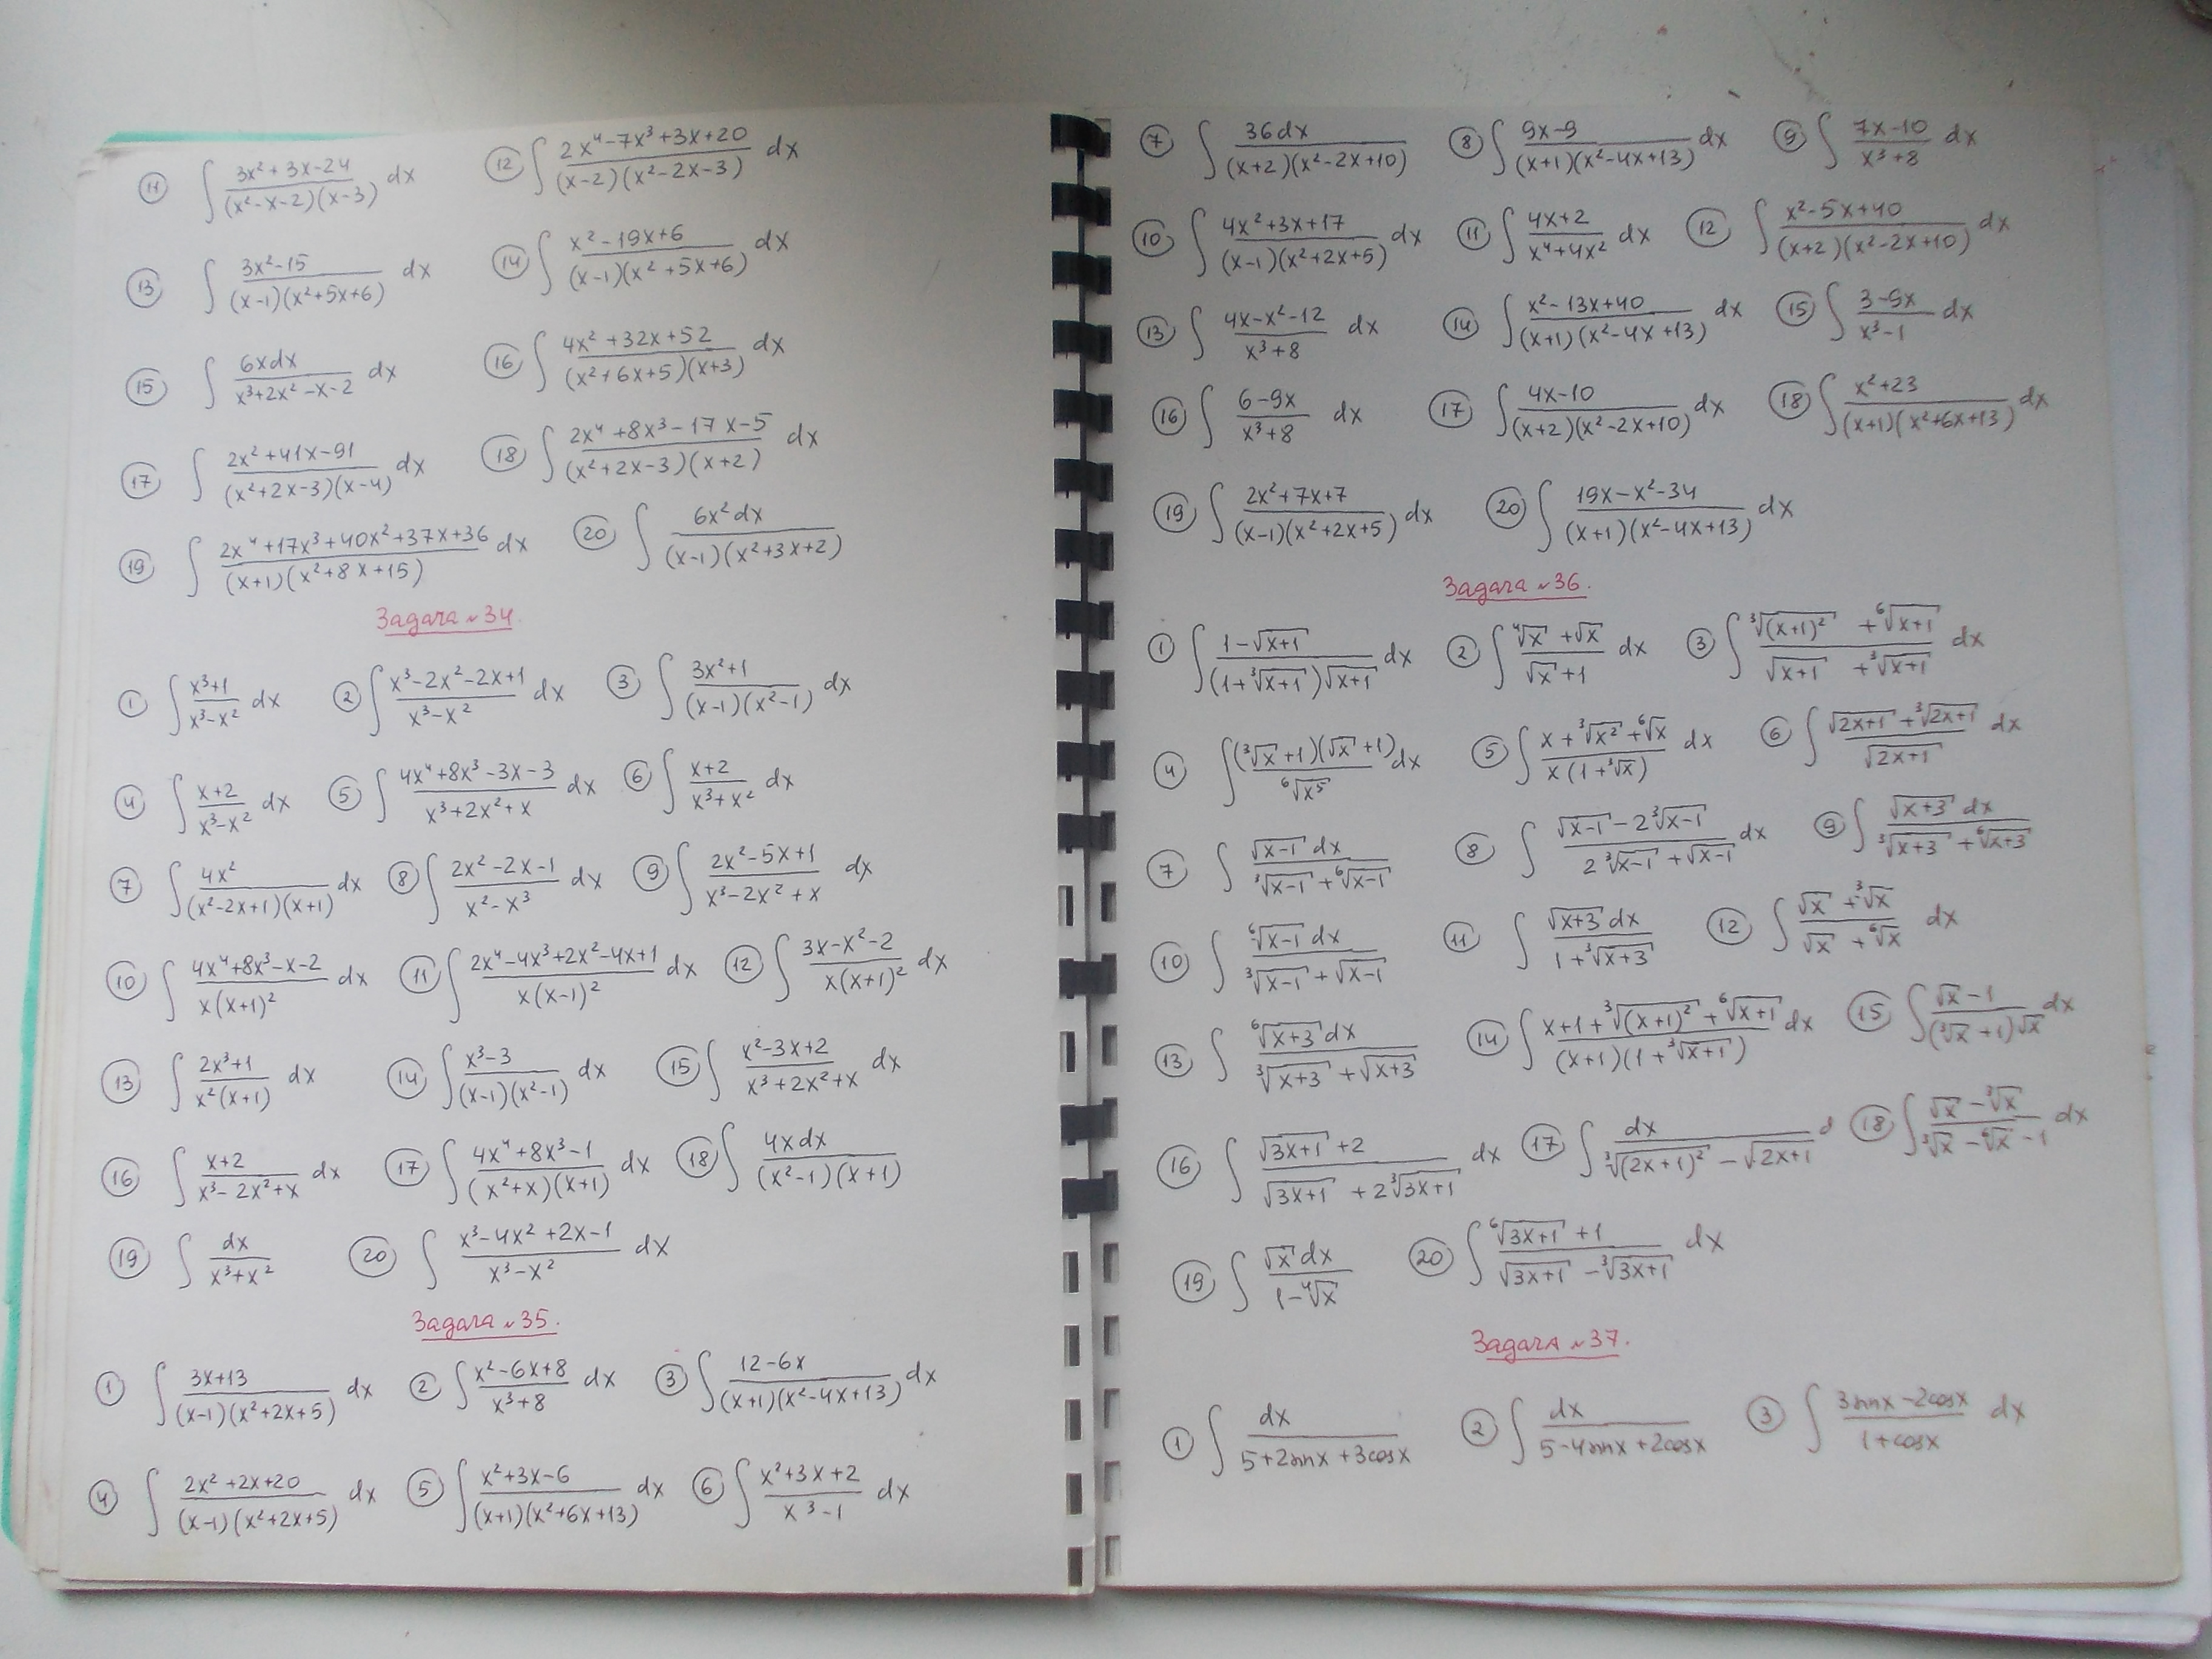 ⑪ ∫ (3x²+3x-24)/((x²-x-2)(x-3)) dx ⑫ ∫ (2x⁴-7x³+3x+20)/((x-2)(x²-2x-3)) dx
⑬ ∫ (3x²-15)/((x-1)(x²+5x+6)) dx ⑭ ∫ (x²-19x+6)/((x-1)(x²+5x+6)) dx
⑮ ∫ (6xdx)/(x³+2x²-x-2) dx ⑯ ∫ (4x²+32x+52)/((x²+6x+5)(x+3)) dx
⑰ ∫ (2x²+41x-91)/((x²+2x-3)(x-4)) dx ⑱ ∫ (2x⁴+8x³-17x-5)/((x²+2x-3)(x+2)) dx
⑲ ∫ (2x⁴+17x³+40x²+37x+36)/((x+1)(x²+8x+15)) dx ⑳ ∫ (6x²dx)/((x-1)(x²+3x+2))
Задача №34.
① ∫ (x³+1)/(x³-x²) dx ② ∫ (x³-2x²-2x+1)/(x³-x²) dx ③ ∫ (3x²+1)/((x-1)(x²-1)) dx
④ ∫ (x+2)/(x³-x²) dx ⑤ ∫ (4x⁴+8x³-3x-3)/(x³+2x²+x) dx ⑥ ∫ (x+2)/(x³+x²) dx
⑦ ∫ (4x²)/((x²-2x+1)(x+1)) dx ⑧ ∫ (2x²-2x-1)/(x²-x³) dx ⑨ ∫ (2x²-5x+1)/(x³-2x²+x) dx
⑩ ∫ (4x⁴+8x³-x-2)/(x(x+1)²) dx ⑪ ∫ (2x⁴-4x³+2x²-4x+1)/(x(x-1)²) dx ⑫ ∫ (3x-x²-2)/(x(x+1)²) dx
⑬ ∫ (2x³+1)/(x²(x+1)) dx ⑭ ∫ (x³-3)/((x-1)(x²-1)) dx ⑮ ∫ (x²-3x+2)/(x³+2x²+x) dx
⑯ ∫ (x+2)/(x³-2x²+x) dx ⑰ ∫ (4x⁴+8x³-1)/((x²+x)(x+1)) dx ⑱ ∫ (4xdx)/((x²-1)(x+1))
⑲ ∫ dx/(x³+x²) ⑳ ∫ (x³-4x²+2x-1)/(x³-x²) dx
Задача №35.
① ∫ (3x+13)/((x-1)(x²+2x+5)) dx ② ∫ (x²-6x+8)/(x³+8) dx ③ ∫ (12-6x)/((x+1)(x²-4x+13)) dx
④ ∫ (2x²+2x+20)/((x-1)(x²+2x+5)) dx ⑤ ∫ (x²+3x-6)/((x+1)(x²+6x+13)) dx ⑥ ∫ (x²+3x+2)/(x³-1) dx
⑦ ∫ (36dx)/((x+2)(x²-2x+10)) ⑧ ∫ (9x-9)/((x+1)(x²-4x+13)) dx ⑨ ∫ (7x-10)/(x³+8) dx
⑩ ∫ (4x²+3x+17)/((x-1)(x²+2x+5)) dx ⑪ ∫ (4x+2)/(x⁴+4x²) dx ⑫ ∫ (x²-5x+40)/((x+2)(x²-2x+10)) dx
⑬ ∫ (4x-x²-12)/(x³+8) dx ⑭ ∫ (x²-13x+40)/((x+1)(x²-4x+13)) dx ⑮ ∫ (3-9x)/(x³-1) dx
⑯ ∫ (6-9x)/(x³+8) dx ⑰ ∫ (4x-10)/((x+2)(x²-2x+10)) dx ⑱ ∫ (x²+23)/((x+1)(x²+6x+13)) dx
⑲ ∫ (2x²+7x+7)/((x-1)(x²+2x+5)) dx ⑳ ∫ (19x-x²-34)/((x+1)(x²-4x+13)) dx
Задача №36.
① ∫ (1-√(x+1))/((1+∛(x+1))√(x+1)) dx ② ∫ (∜x+√x)/(√x+1) dx ③ ∫ (∛((x+1)²)+⁶√(x+1))/(√(x+1)+∛(x+1)) dx
④ ∫ ((∛x+1)(√x+1))/(⁶√(x⁵)) dx ⑤ ∫ (x+∛(x²)+⁶√x)/(x(1+∛x)) dx ⑥ ∫ (√(2x+1)+∛(2x+1))/√(2x+1) dx
⑦ ∫ (√(x-1)dx)/(∛(x-1)+⁶√(x-1)) ⑧ ∫ (√(x-1)-2∛(x-1))/(2∛(x-1)+√(x-1)) dx ⑨ ∫ (√(x+3)dx)/(∛(x+3)+⁶√(x+3))
⑩ ∫ (⁶√(x-1)dx)/(∛(x-1)+√(x-1)) ⑪ ∫ (√(x+3)dx)/(1+∛(x+3)) ⑫ ∫ (√x+∛x)/(√x+⁶√x) dx
⑬ ∫ (⁶√(x+3)dx)/(∛(x+3)+√(x+3)) ⑭ ∫ (x+1+∛((x+1)²)+⁶√(x+1))/((x+1)(1+∛(x+1))) dx ⑮ ∫ (√x-1)/((∛x+1)√x) dx
⑯ ∫ (√(3x+1)+2)/(√(3x+1)+2∛(3x+1)) dx ⑰ ∫ dx/(∛((2x+1)²)-√(2x+1)) d ⑱ ∫ (√x-∛x)/(∛x-⁶√x-1) dx
⑲ ∫ (√x dx)/(1-∜x) ⑳ ∫ (⁶√(3x+1)+1)/(√(3x+1)-∛(3x+1)) dx
Задача №37.
① ∫ dx/(5+2sinx+3cosx) ② ∫ dx/(5-4sinx+2cosx) ③ ∫ (3sinx-2cosx)/(1+cosx) dx